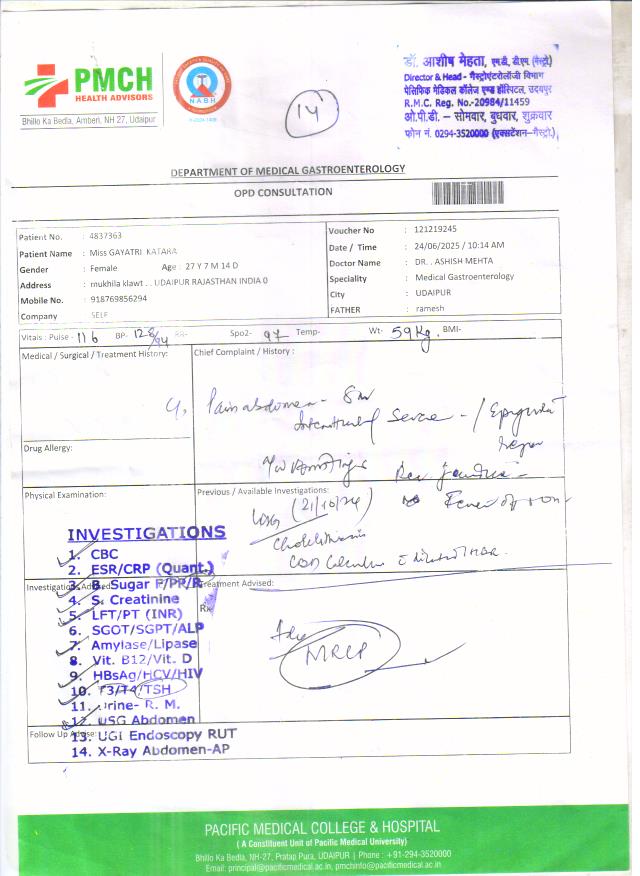 PMCH
HEALTH ADVISORS
Bhillo Ka Bedla, Amberi, NH 27, Udaipur
NABH
14
डॉ. आशीष मेहता, एम.डी, डी.एम. (गैस्ट्रो)
Director & Head - गैस्ट्रोएंटरोलॉजी विभाग
पेसिफिक मेडिकल कॉलेज एण्ड हॉस्पिटल, उदयपुर
R.M.C. Reg. No.-20984/11459
ओ.पी.डी. – सोमवार, बुधवार, शुक्रवार
फोन नं. 0294-3520000 (एक्सटेंशन-गैस्ट्रो.)
DEPARTMENT OF MEDICAL GASTROENTEROLOGY
OPD CONSULTATION
Patient No. : 4837363
Patient Name : Miss GAYATRI KATARA
Gender : Female Age : 27 Y 7 M 14 D
Address : mukhila klawt . . UDAIPUR RAJASTHAN INDIA 0
Mobile No. : 918769856294
Company SELF
Voucher No : 121219245
Date / Time : 24/06/2025 / 10:14 AM
Doctor Name : DR. . ASHISH MEHTA
Speciality : Medical Gastroenterology
City : UDAIPUR
FATHER : ramesh
Vitals : Pulse - 116 BP- 128/94 RR- Spo2- 97 Temp- Wt- 59 Kg. BMI-
Medical / Surgical / Treatment History:
Chief Complaint / History :
Pain abdomen -
Severe - / Epigastric
region
Drug Allergy:
Physical Examination:
Previous / Available Investigations:
USG (21/10/24)
Cholelithiasis
CBD Calculus
Investigation Advised:
Treatment Advised:
Rx
Adv
MRCP
INVESTIGATIONS
1. CBC
2. ESR/CRP (Quant.)
3. B. Sugar F/PP/R
4. S. Creatinine
5. LFT/PT (INR)
6. SGOT/SGPT/ALP
7. Amylase/Lipase
8. Vit. B12/Vit. D
9. HBsAg/HCV/HIV
10. T3/T4/TSH
11. Urine- R. M.
12. USG Abdomen
Follow Up Advise:
13. UGI Endoscopy RUT
14. X-Ray Abdomen-AP
PACIFIC MEDICAL COLLEGE & HOSPITAL
( A Constituent Unit of Pacific Medical University)
Bhillo Ka Bedla, NH-27, Pratap Pura, UDAIPUR | Phone : +91-294-3520000
Email: principal@pacificmedical.ac.in, pmchinfo@pacificmedical.ac.in